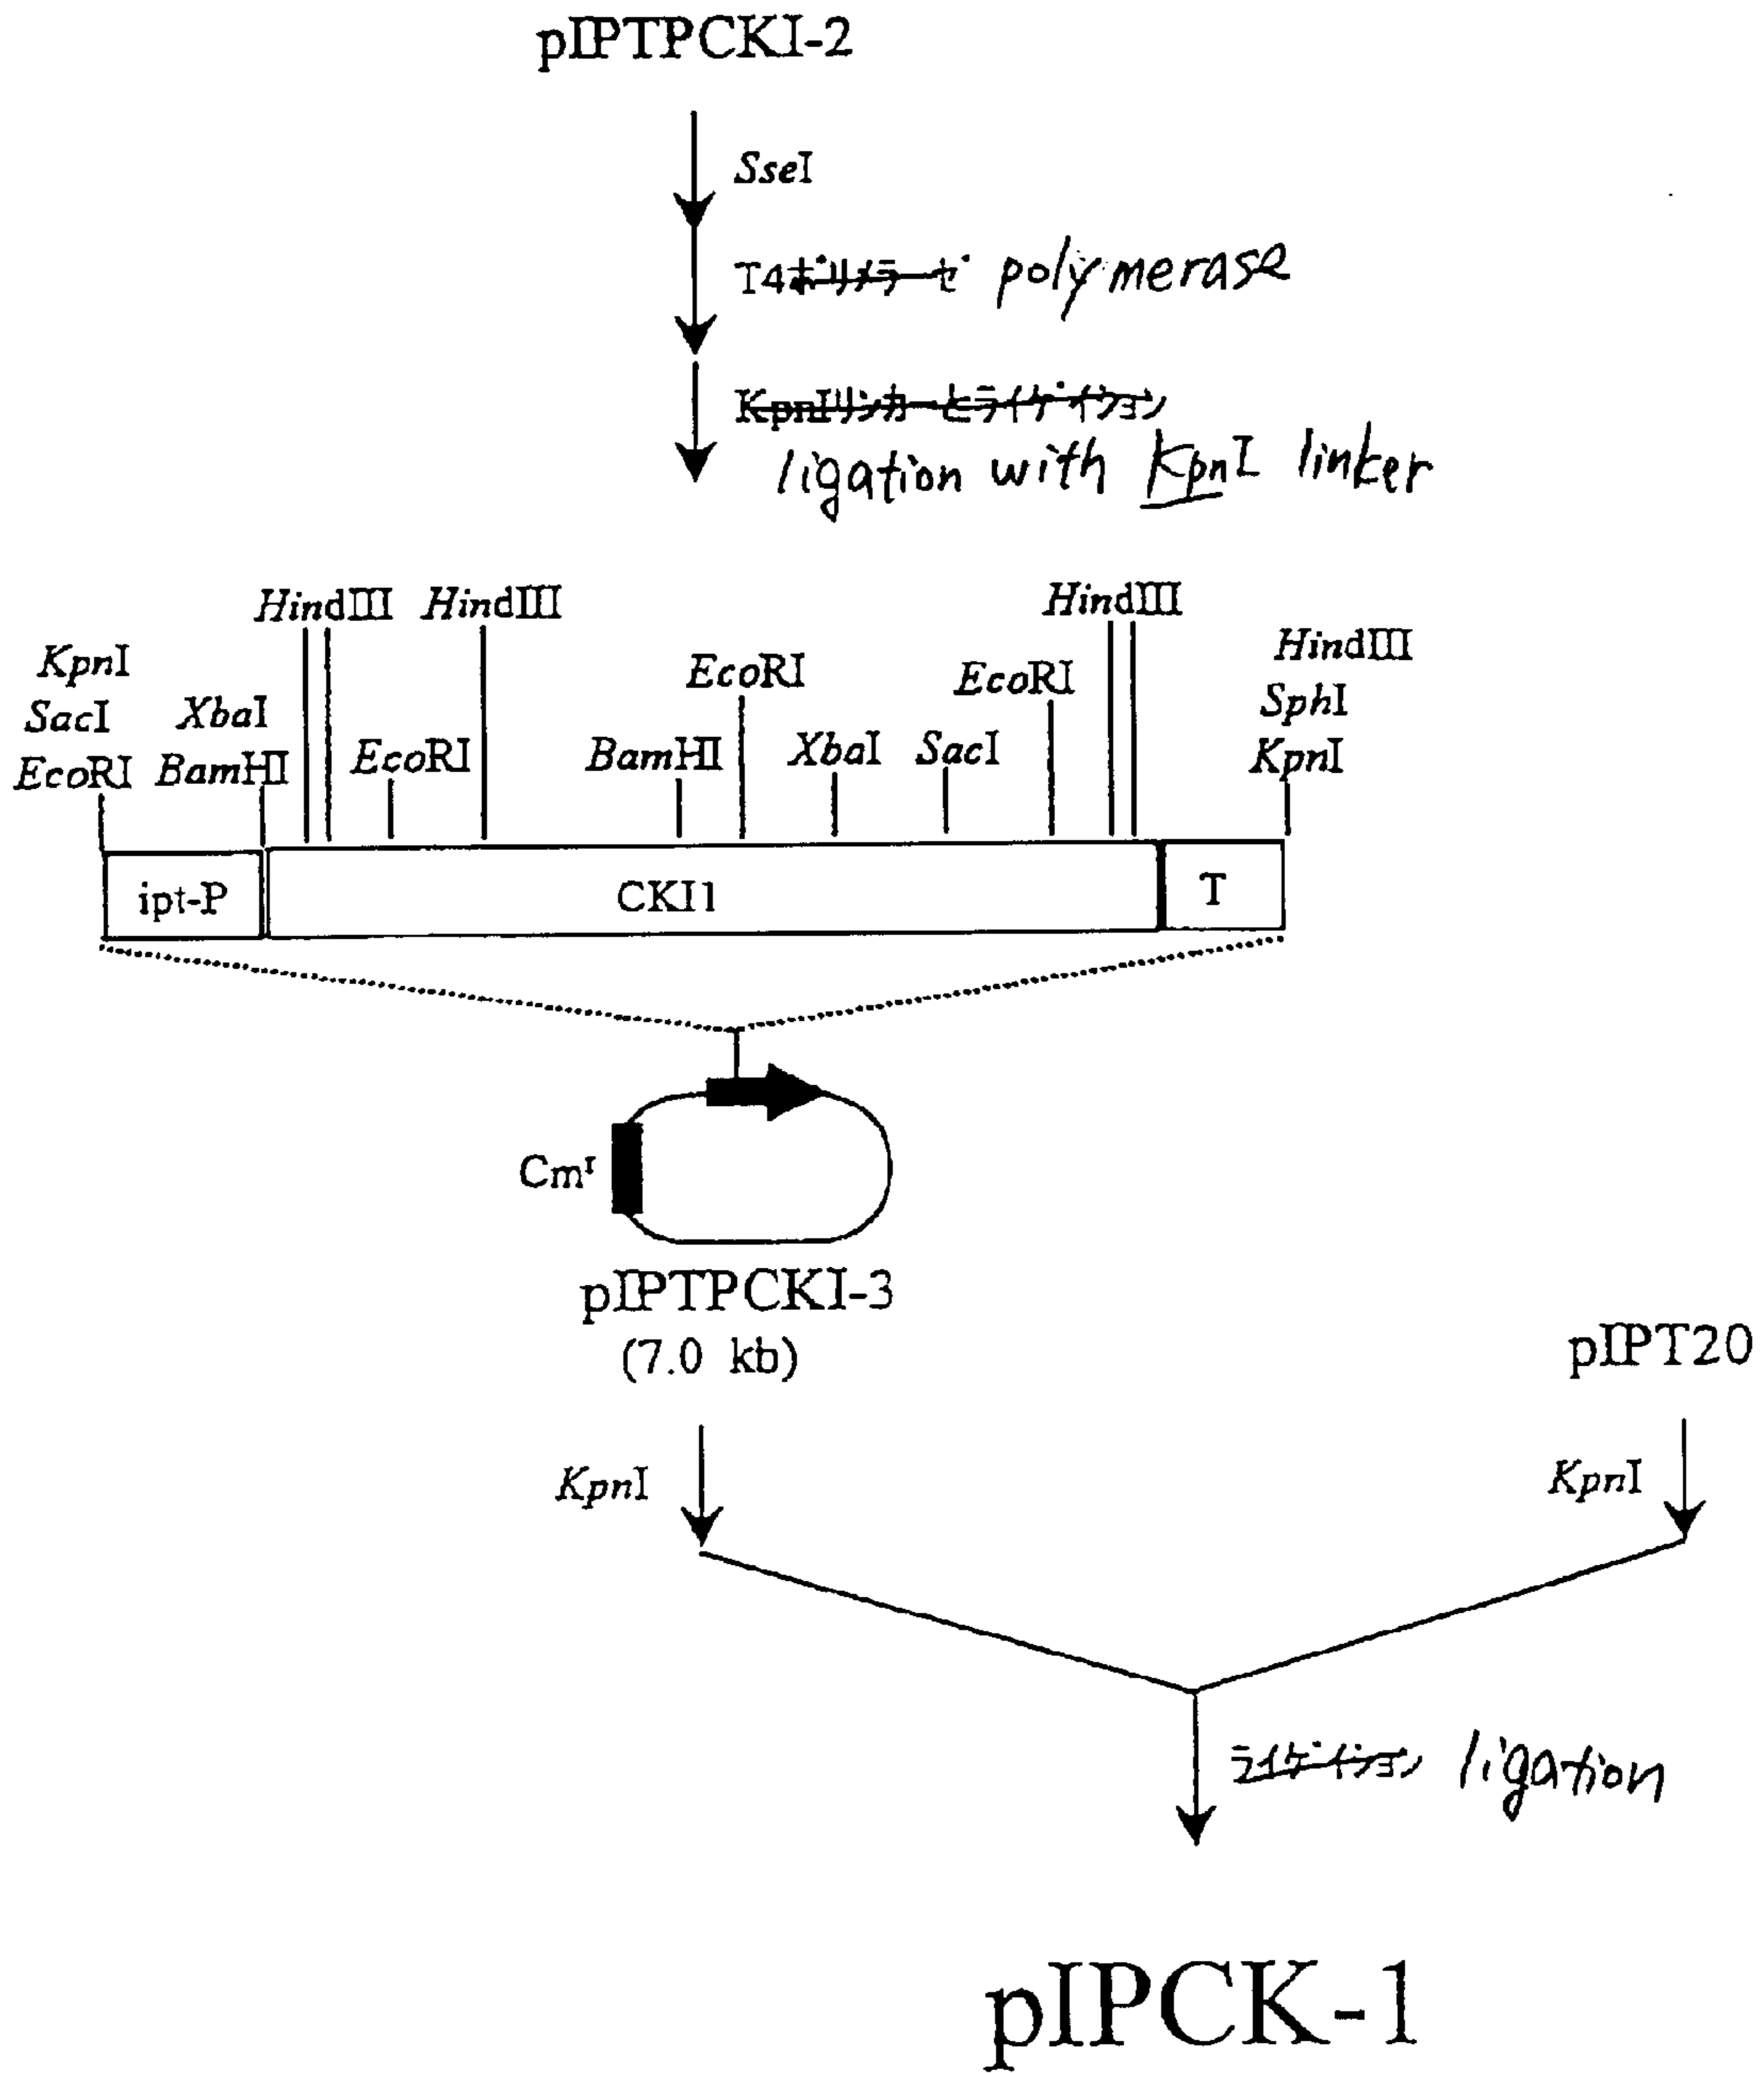 pIPTPCKI-2
SseI
T4ポリメラーゼ polymerase
KpnIリンカーとライゲイション
ligation with KpnI linker
HindIII HindIII HindIII
KpnI EcoRI EcoRI HindIII
SacI XbaI SphI
EcoRI BamHI EcoRI BamHI XbaI SacI KpnI
ipt-P CKI1 T
Cmʳ
pIPTPCKI-3
(7.0 kb)
pIPT20
KpnI KpnI
ライゲイション ligation
pIPCK-1